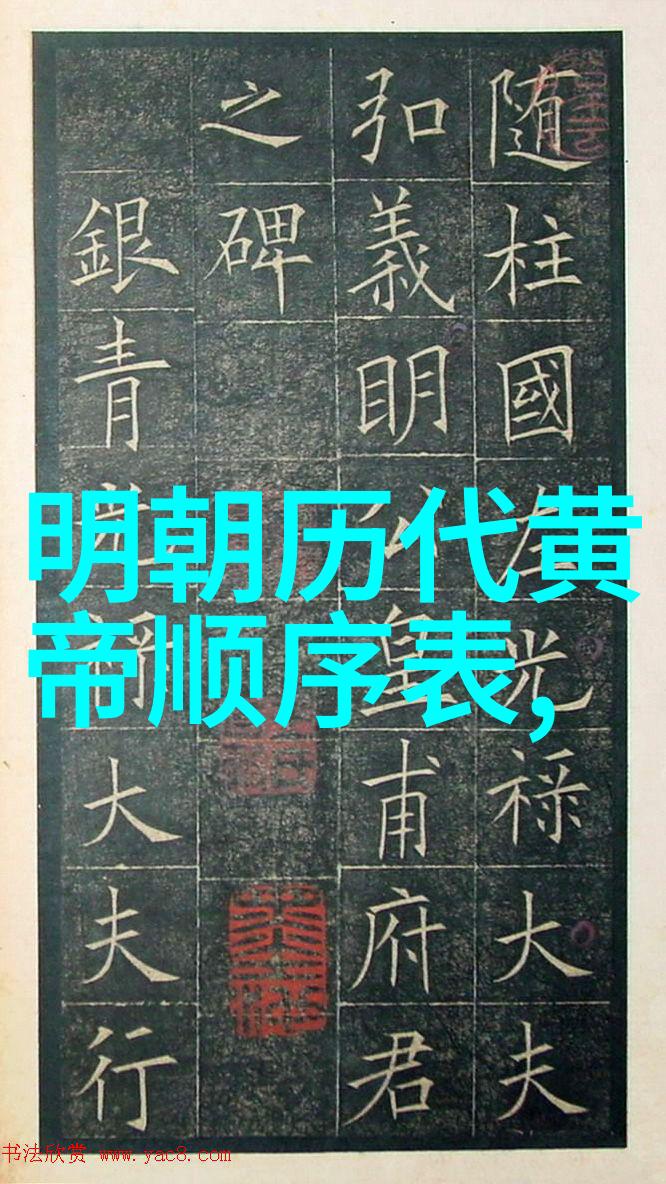 随柱國左光禄大夫
弘義明公皇甫府君
之碑
銀青光禄大夫行
明朝历代黄
帝顺序表,
书法欣赏 www.yac8.com